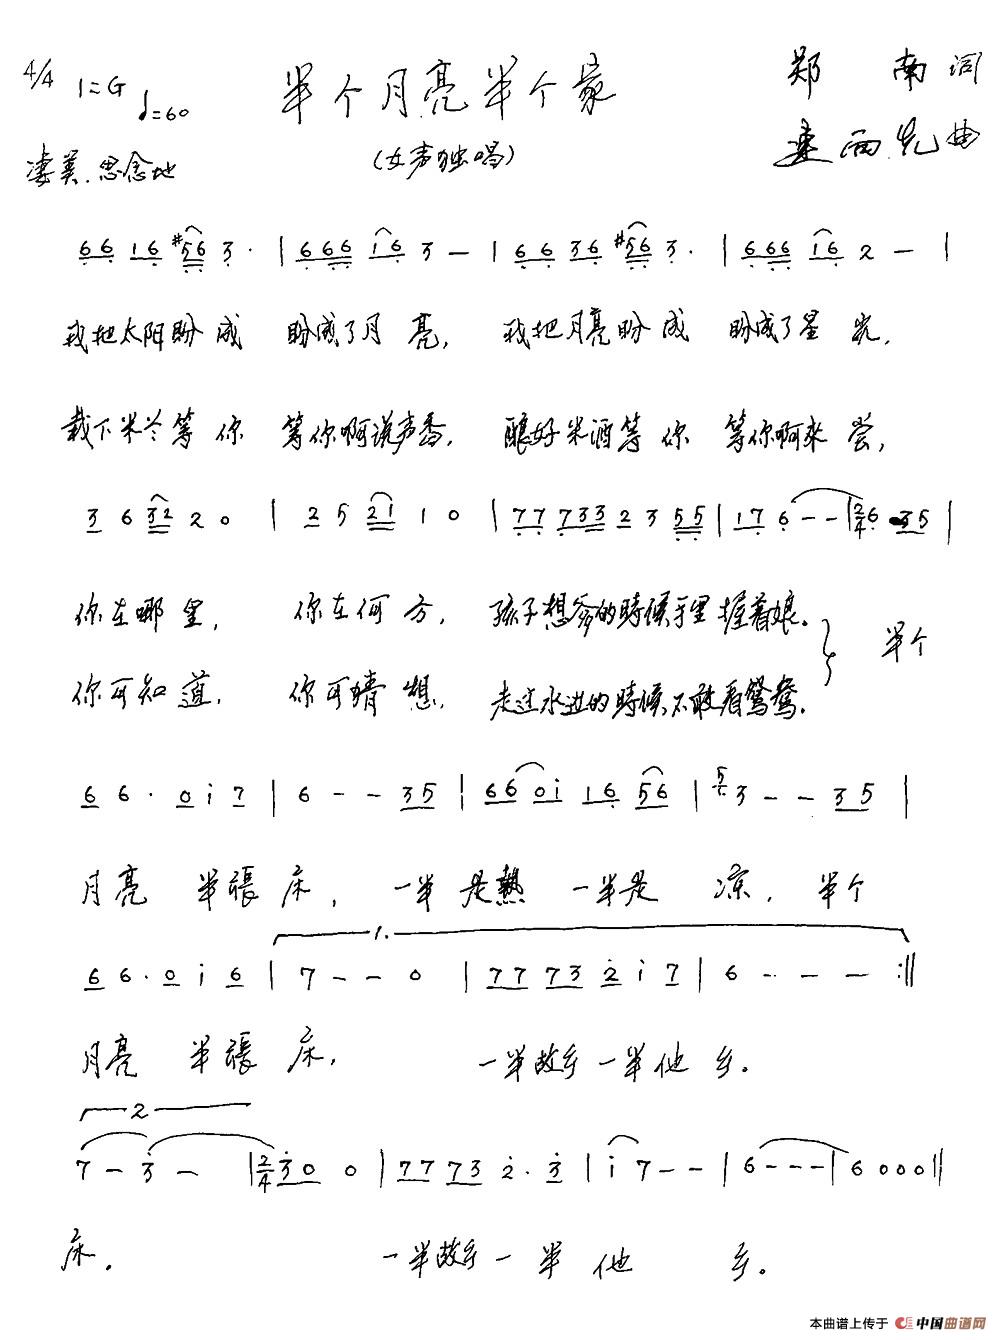 4/4 1=G ♩=60 半个月亮半个家 郑南词
凄美.思念地 (女声独唱) 西 曲
66 16 #56 3· | 666 16 3 — | 66 36 #56 3· | 666 16 2 — |
我把太阳盼成 盼成了月亮, 我把月亮盼成 盼成了星光,
栽下米兰等你 等你啊说声香, 酿好米酒等你 等你啊来尝,
3 6 32 2 0 | 2 5 21 1 0 | 77 733 2 3 55 | 17 6 - - | 2/4 6 35 |
你在哪里, 你在何方, 孩子想爹的時候手里握着娘。 半个
你可知道, 你可猜想, 走过水边的時候,不敢看鸳鸯.
6 6· 0 i 7 | 6 - - 35 | 66 0i 16 56 | 5 3 - - 35 |
月亮 半張床, 一半是熱 一半是凉, 半个
1.
6 6· 0 i 6 | 7 - - 0 | 77 73 2 i 7 | 6 - - — :||
月亮 半張床, 一半故乡一半他乡。
2
7 - 3 - | 2/4 30 0 | 77 73 2· 3 | i 7 - - | 6 - - - | 6 0 0 0 ||
床。 一半故乡一半他乡。
本曲谱上传于 中国曲谱网